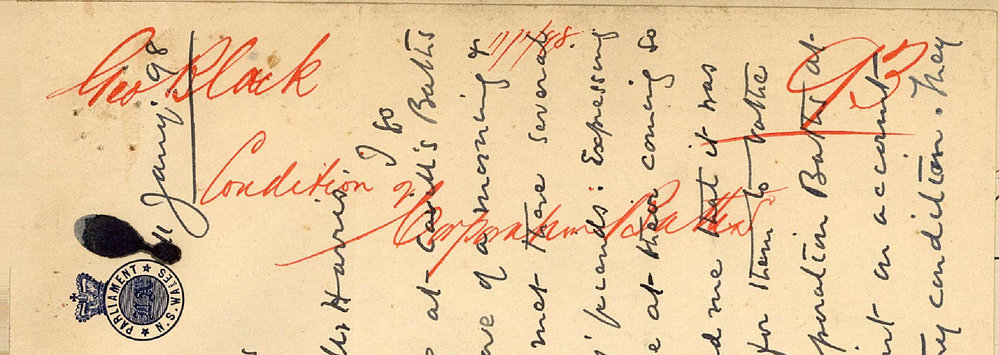 Geo Black
11/1/98.
93
Condition of
Corporation Baths
11 Jany. 98
PARLIAMENT
N.S. WALES
Harris
I go
at Cavill's Baths
of a morning &
met there several
friends. Expressing
at their coming so
me that it was
for them to bathe
poration Baths at
on account
condition. They